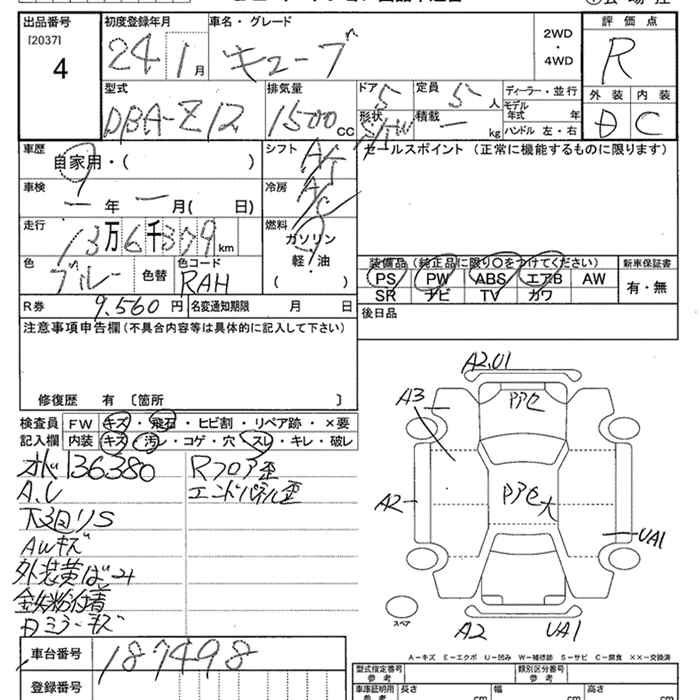 出品番号
[2037]
4
初度登録年月
24 1月
車名・グレード
キューブ
2WD
・
4WD
評価点
R
外装 内装
D C
型式
DBA-Z12
排気量
1500 CC
ドア
5
定員
5人
形状
S/W
積載
— kg
ディーラー・並行
モデル
年式 年
ハンドル 左・右
車歴
自家用・( )
シフト
冷房
A/C
セールスポイント (正常に機能するものに限ります)
車検
— 年 — 月( 日)
走行
13万6千379km
燃料
ガソリン
軽・油
( )
色
ブルー
色替
色コード
RAH
装備品 (純正品に限り〇をつけてください)
PS PW ABS エアB AW
SR ナビ TV カワ
新車保証書
有・無
R券
9,560円
名変通知期限 月 日
後日品
注意事項申告欄(不具合内容等は具体的に記入して下さい)
修復歴 有 〔箇所 〕
検査員
記入欄
FW キズ・飛石・ヒビ割・リペア跡・×要
内装 キズ・汚レ・コゲ・穴・スレ・キレ・破レ
136380
Rフロア歪
エンドパネル歪
下廻りS
AWキズ
鉄粉付着
A2,01
A3
A2
UA1
A2
UA1
スペア
A-キズ E-エクボ U-凹み W-補修跡 S-サビ C-腐食 ××-交換済
車台番号
187498
登録番号
型式指定番号
参考
類別区分番号
参考
車庫証明用
参考
長さ cm
幅 cm
高さ cm